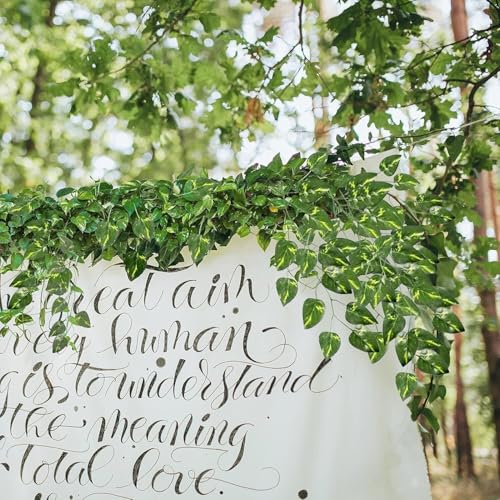 great aim
every human
g is to understand
the meaning
total love.